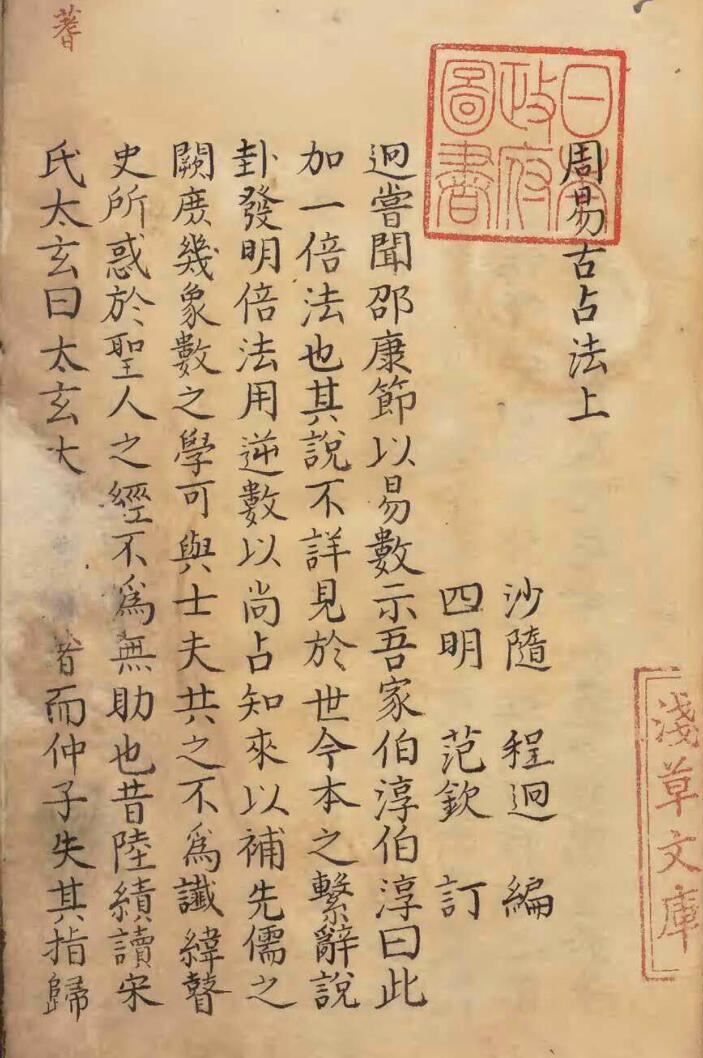 蓍
日本
政府
圖書
周易古占法上
沙隨 程迥 編
四明 范欽 訂
迥嘗聞邵康節以易數示吾家伯淳伯淳曰此
加一倍法也其說不詳見於世今本之繫辭說
卦發明倍法用逆數以尚占知來以補先儒之
闕庻幾象數之學可與士夫共之不爲讖緯瞽
史所惑於聖人之經不爲無助也昔陸績讀宋
氏太玄曰太玄大 㫖而仲子失其指歸
淺草文庫